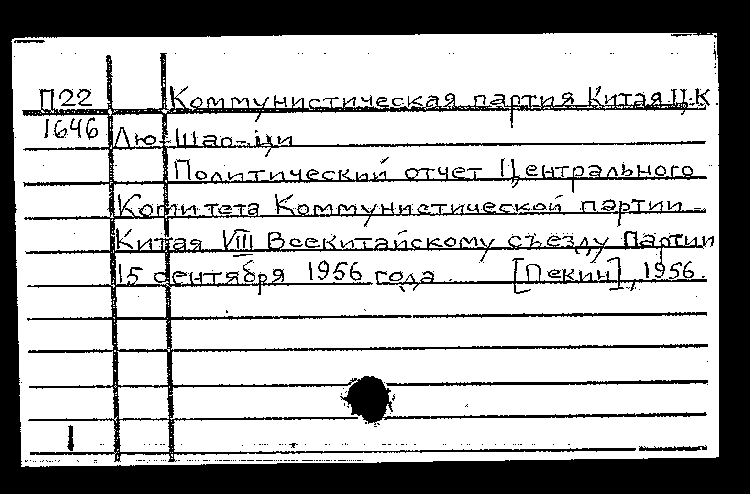 П22 Коммунистическая партия Китая Ц.К.
1646 Лю Шао-ци
Политический отчет Центрального
Комитета Коммунистической партии
Китая VIII Всекитайскому съезду Партии
15 сентября 1956 года [Пекин], 1956.